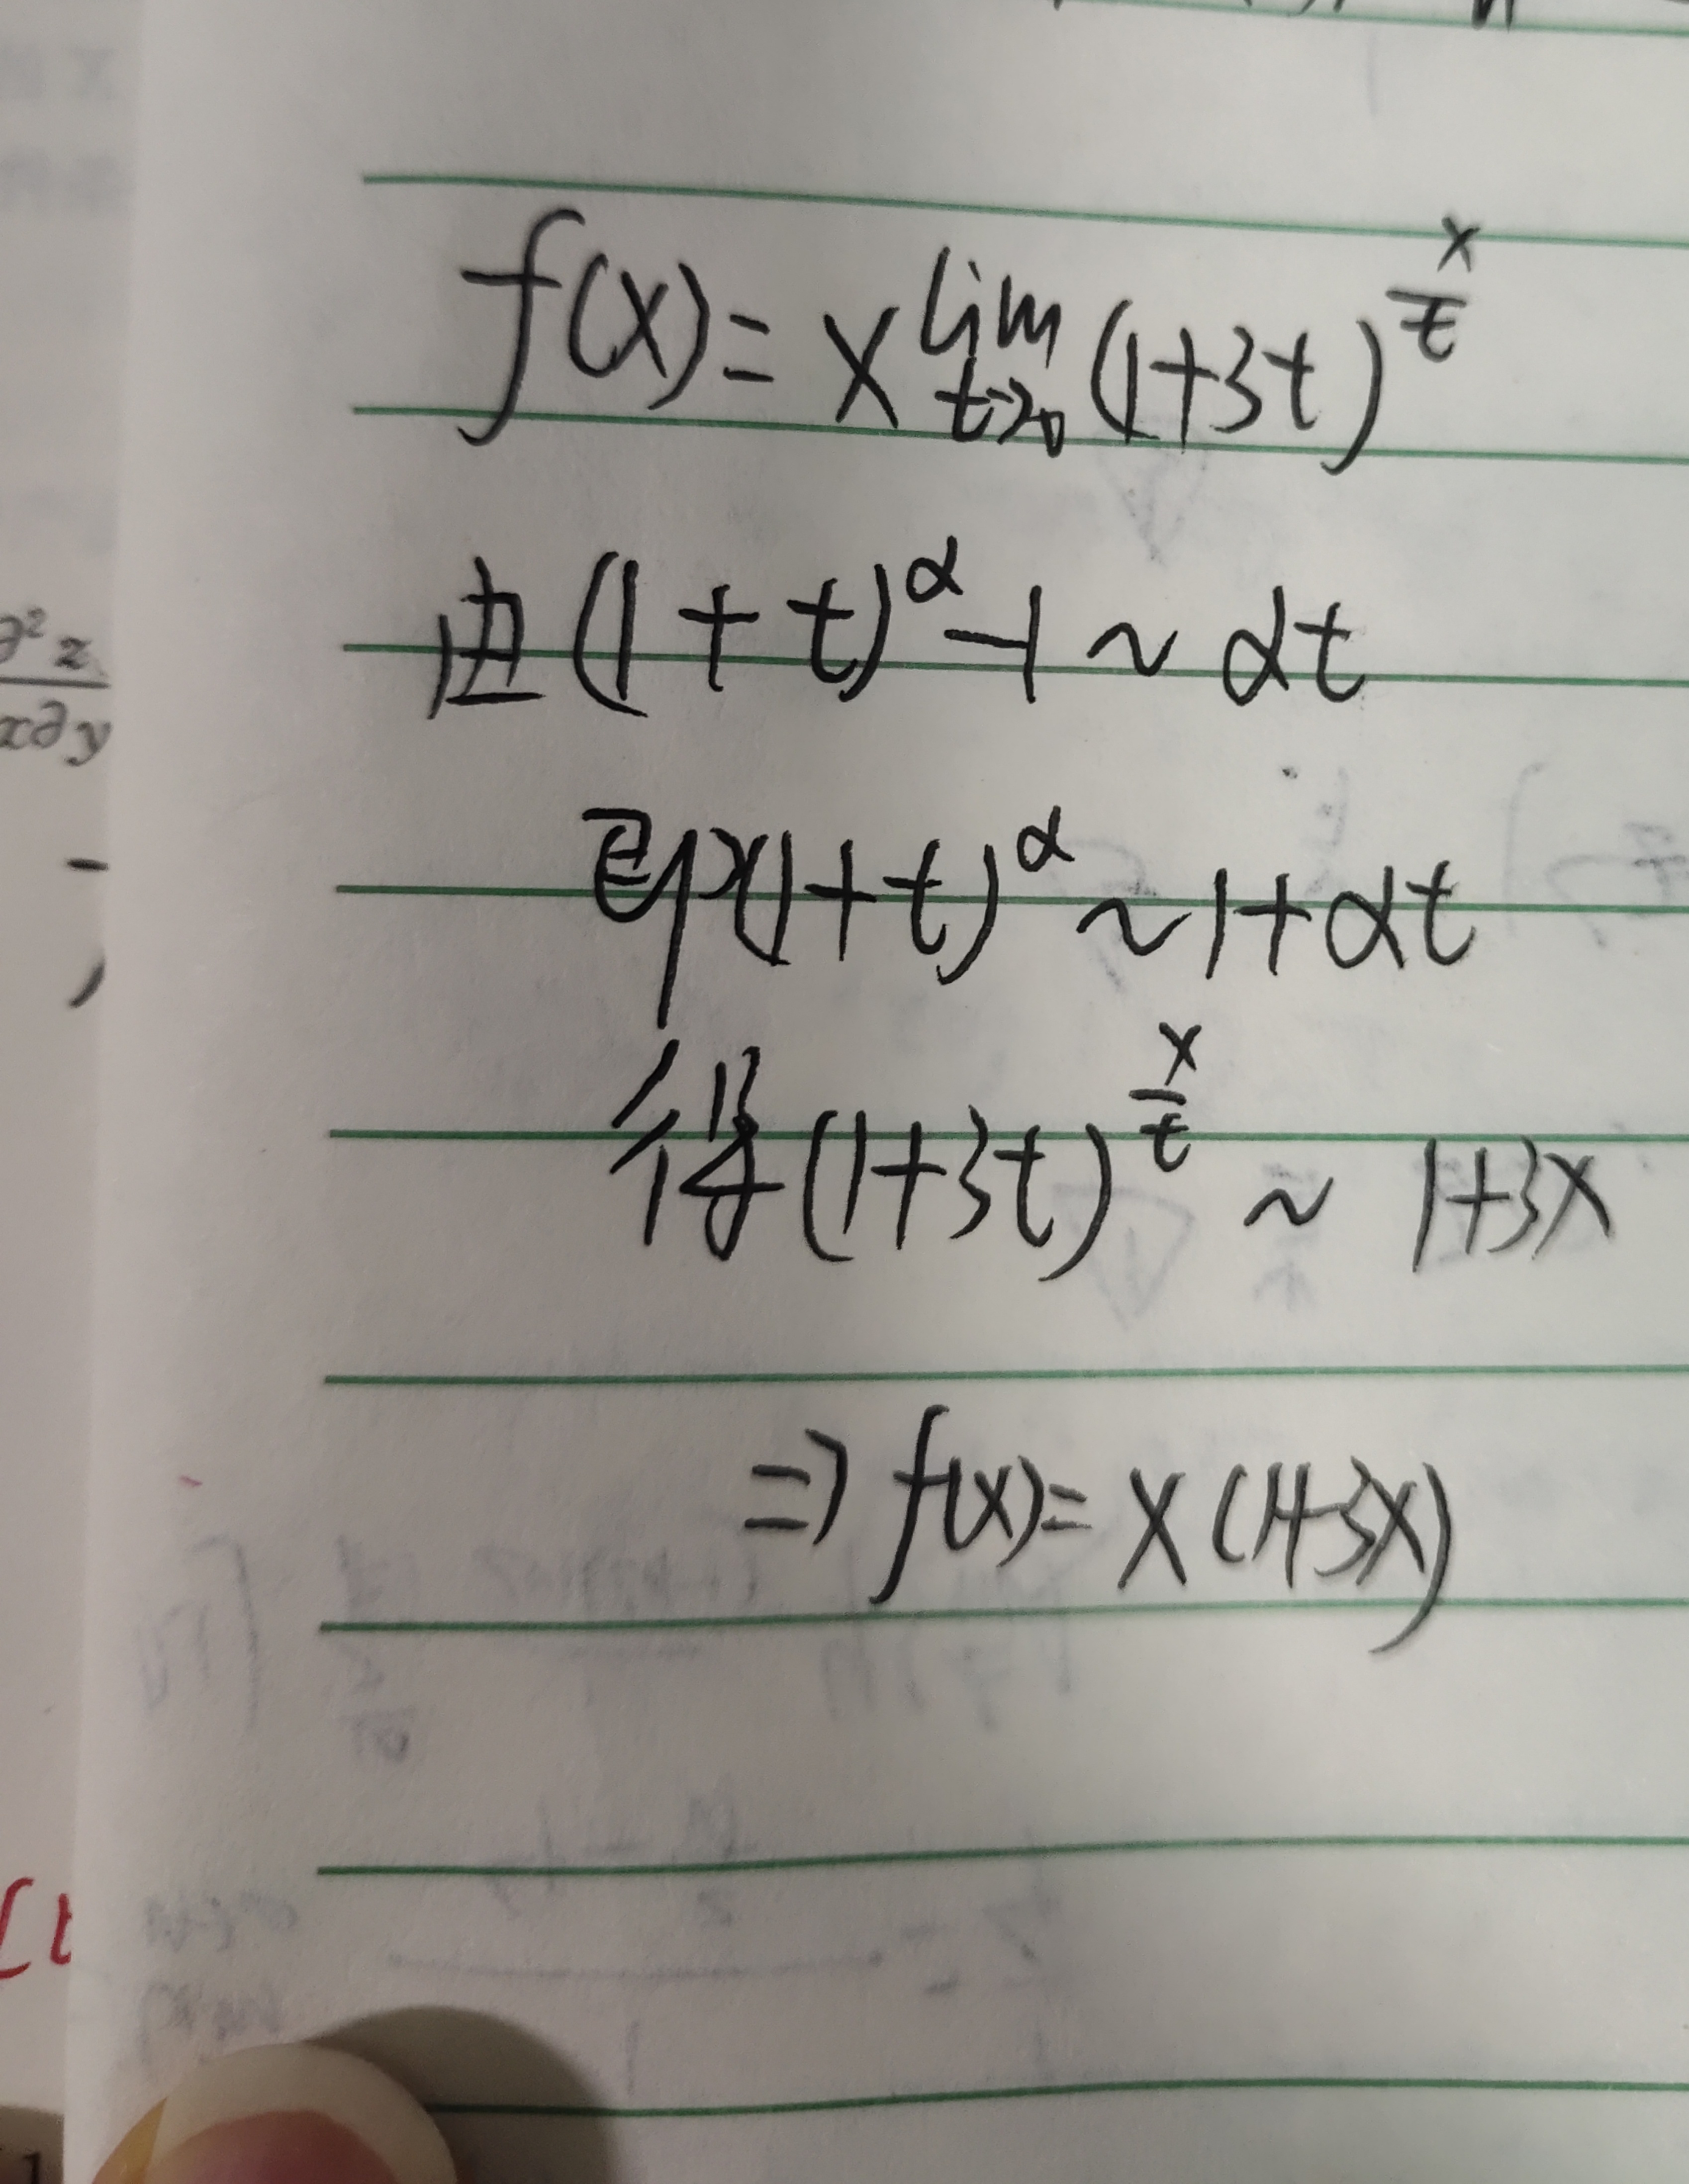 ∂²z
x∂y
f(x)= x lim t→0 (1+3t)^(x/t)
由 (1+t)^α -1 ~ αt
即 (1+t)^α ~ 1+αt
得 (1+3t)^(x/t) ~ 1+3x
⇒ f(x)= x(1+3x)